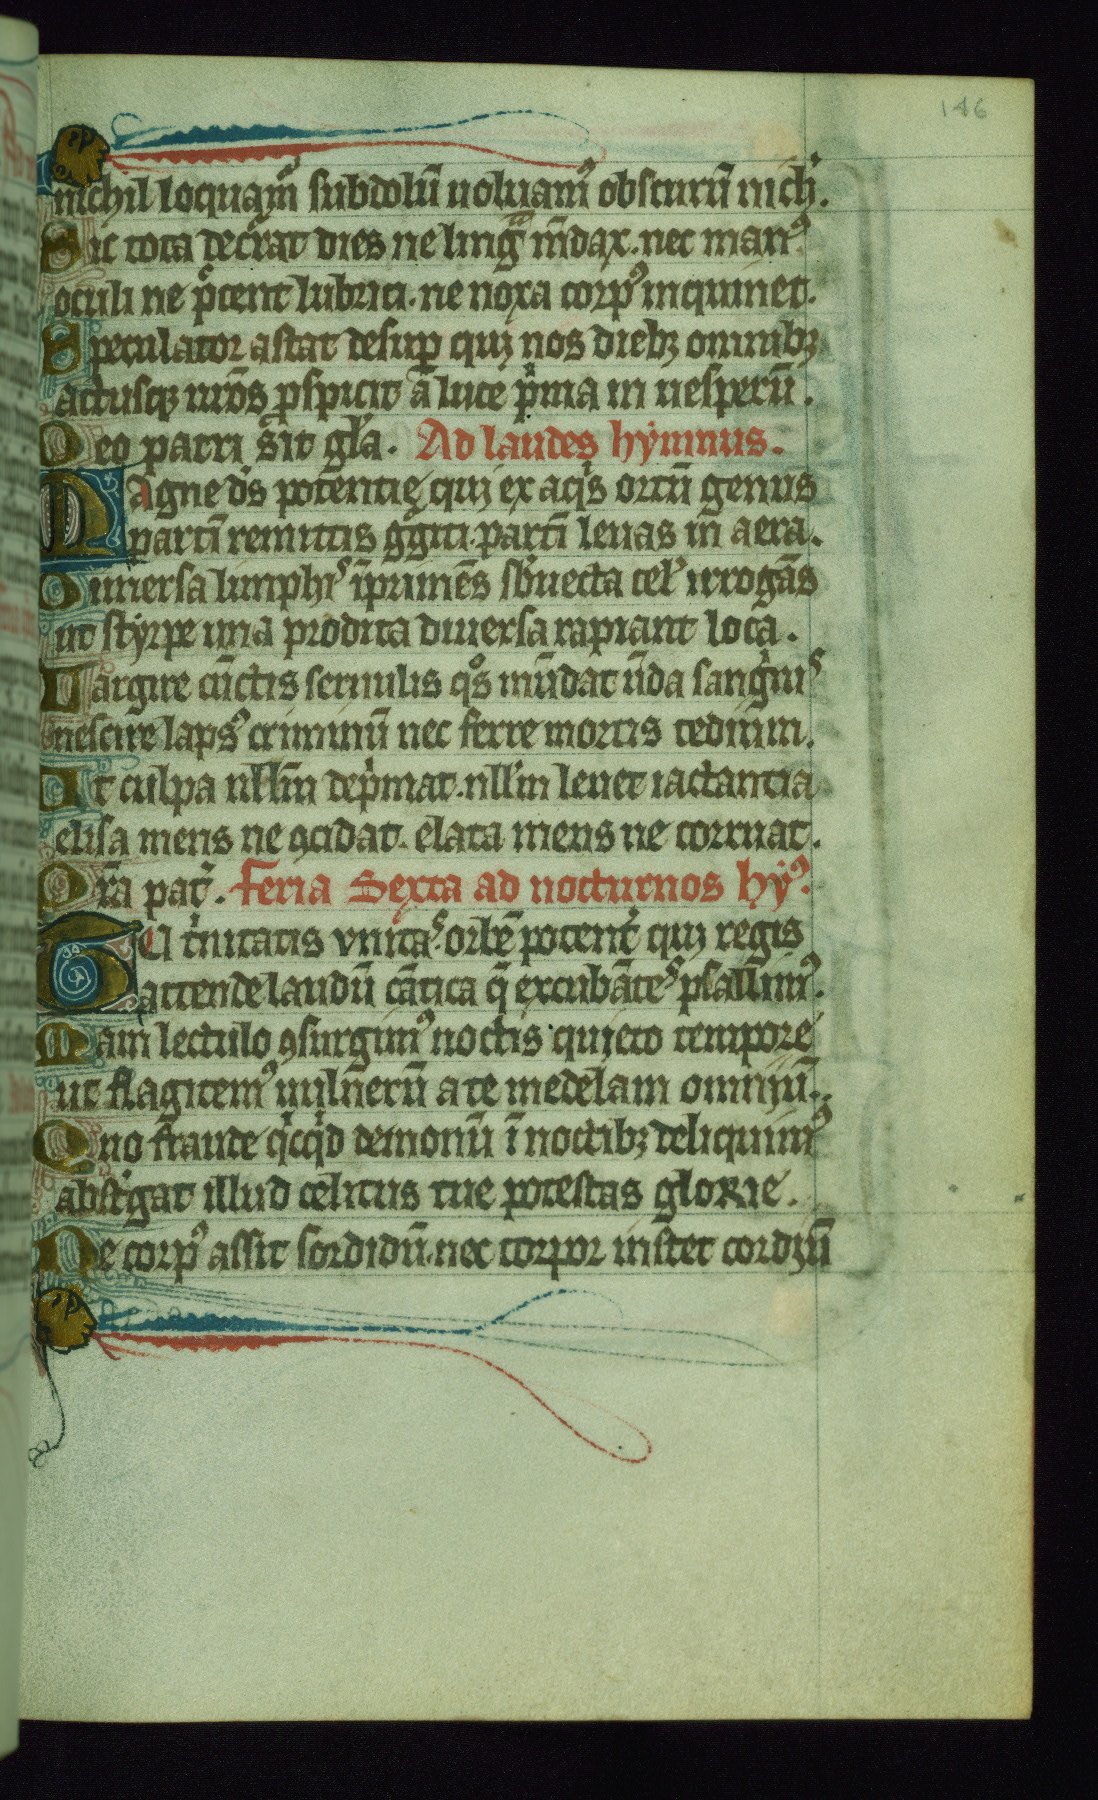 146
nichil loquam᷒ subdolū uoluam᷒ obscurū nichˡ.
Sic tota decrͬat dies ne ling̅ m̅dax. nec man᷒
oculi ne p̊cent lubrici. ne noxa corp᷒ inquinet.
Speculator astat desup̱ qui nos dieb; omnib;
actusq; nr̄os ꝑspicit a luce pͥma in uesperū.
Deo patri sit gl̄a. Ad laudes hẏmnus.
Magne ds̄ potentię qui ex aqͥs ortū genus
partī remittis gͬgiti. partī leuas in aera.
Dimersa limphiˢ īprimēs sb̄uecta celˡ irrogās
ut stẏrpe una prodita diuersa rapiant loca.
Largire cūctis seruulis qͦs mūdat ūda sanguiˢ
nescire laps᷒ criminū nec ferre mortis tedium.
Ut culpa nllm̄ depͥmat. nllm̄ leuet iactantia
elisa mens ne ꝯcidat. elata mens ne corruat.
Pͬa pat̄. Feria Sexta ad nocturnos hẏ᷒.
Tu tͥnitatis vnitaˢ. orbē potent̄ qui regis
attende laudū cātica q̄ excubāteˢ psallim᷒.
Nam lectulo ꝯsurgim᷒ noctis quieto tempore
ut flagitem᷒ uulnerū a te medelam omniū.
Quo fraude qͥcqͥd demonū ī noctib; deliquim᷒
abstͬgat illud celitus tue potestas glorie.
Ne corp᷒ assit sordidū. nec torpor instet cordiū